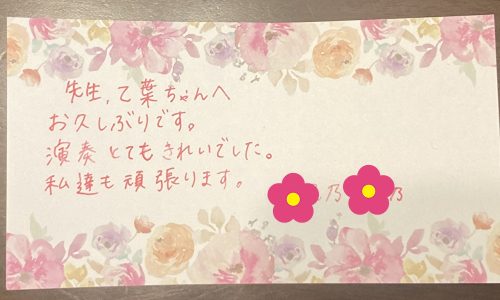 先生、乙葉ちゃんへ
お久しぶりです。
演奏とてもきれいでした。
私達も頑張ります。
乃 乃